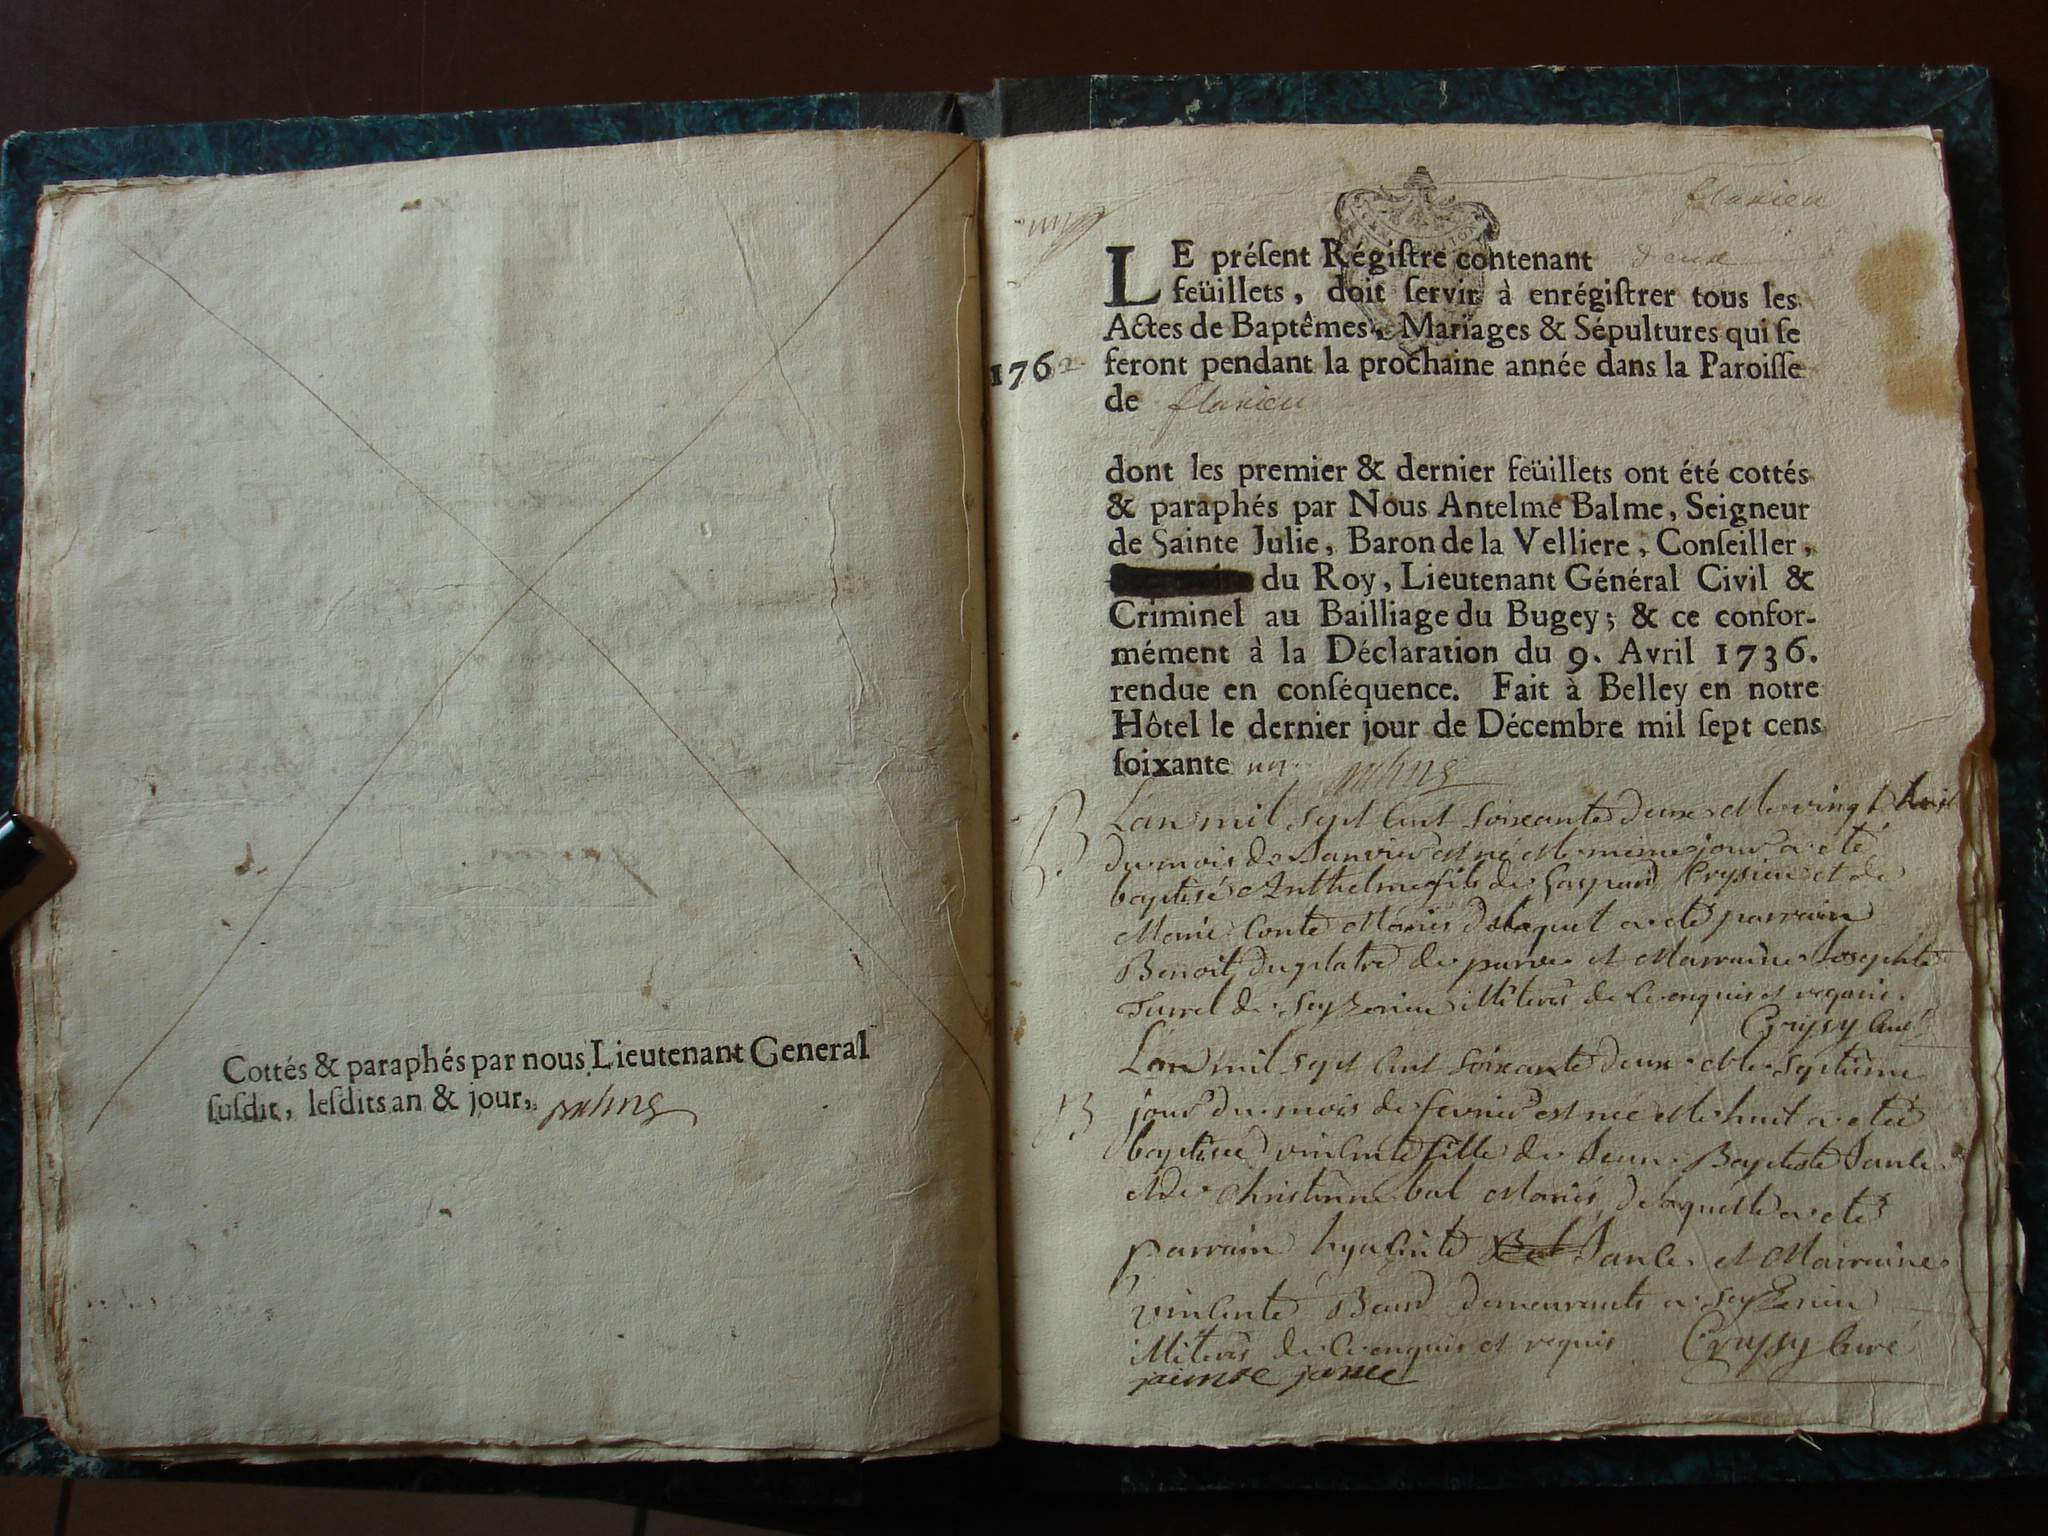 Cottés & paraphés par nous Lieutenant General
ſuſdit, leſdits an & jour,
flaxieu
LE préſent Régiſtre contenant deux
feüillets, doit ſervir à enrégiſtrer tous les
Actes de Baptêmes, Mariages & Sépultures qui ſe
1762
feront pendant la prochaine année dans la Paroiſſe
de flaxieu
dont les premier & dernier feüillets ont été cottés
& paraphés par Nous Antelme Balme, Seigneur
de Sainte Julie, Baron de la Velliere, Conſeiller,
du Roy, Lieutenant Général Civil &
Criminel au Bailliage du Bugey; & ce confor-
mément à la Déclaration du 9. Avril 1736.
rendue en conſéquence. Fait à Belley en notre
Hôtel le dernier jour de Décembre mil ſept cens
ſoixante un
B
L'an mil sept cent soixante deux et le vingt
du mois de Janvier est né et le meme jour a eté
baptisé Anthelme fils de Gaspard et de
Marie Conte Mariés duquel a eté parrain
Benoit duplatre de parve et Marraine Josephte
Turrel de illiterés de ce enquis et
Crussy Curé
L'an mil sept cent soixante deux et le septieme
B
jour du mois de fevrier est née et le huit a eté
baptisée vincente fille de Jean Baptiste Janle
et de Christinne bal Mariés de laquelle a eté
parrain hyacinte Janle et Marraine
vincente Beaud demeurants a
illiterés de ce enquis et requis Crussy Curé